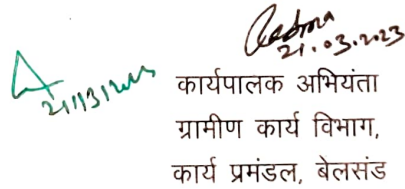 21.03.2023
कार्यपालक अभियंता
ग्रामीण कार्य विभाग,
कार्य प्रमंडल, बेलसंड